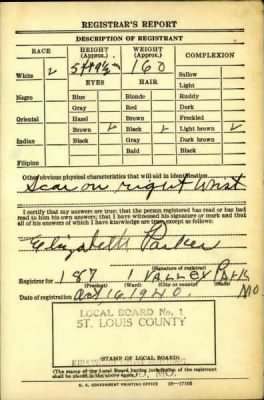 REGISTRAR'S REPORT
DESCRIPTION OF REGISTRANT
RACE HEIGHT (Approx.) WEIGHT (Approx.) COMPLEXION
5 ft 9½ 160 Sallow
White EYES HAIR Light
Negro Blue Blonde Ruddy
Gray Red Dark
Oriental Hazel Brown Freckled
Brown Black Light brown
Indian Black Gray Dark brown
Bald Black
Filipino
Other obvious physical characteristics that will aid in identification
Scar on right Wrist
I certify that my answers are true; that the person registered has read or has had
read to him his own answers; that I have witnessed his signature or mark and that
all of his answers of which I have knowledge are true, except as follows:
Elizabeth Parker
(Signature of registrar)
Registrar for 187 1 Valley Park MO.
(Precinct) (Ward) (City or county) (State)
Date of registration Oct 16 1940
LOCAL BOARD No. 1
ST. LOUIS COUNTY
MO.
(STAMP OF LOCAL BOARD)
(The stamp of the Local Board having jurisdiction of the registrant
shall be placed in the above space.)
U. S. GOVERNMENT PRINTING OFFICE 16—17105